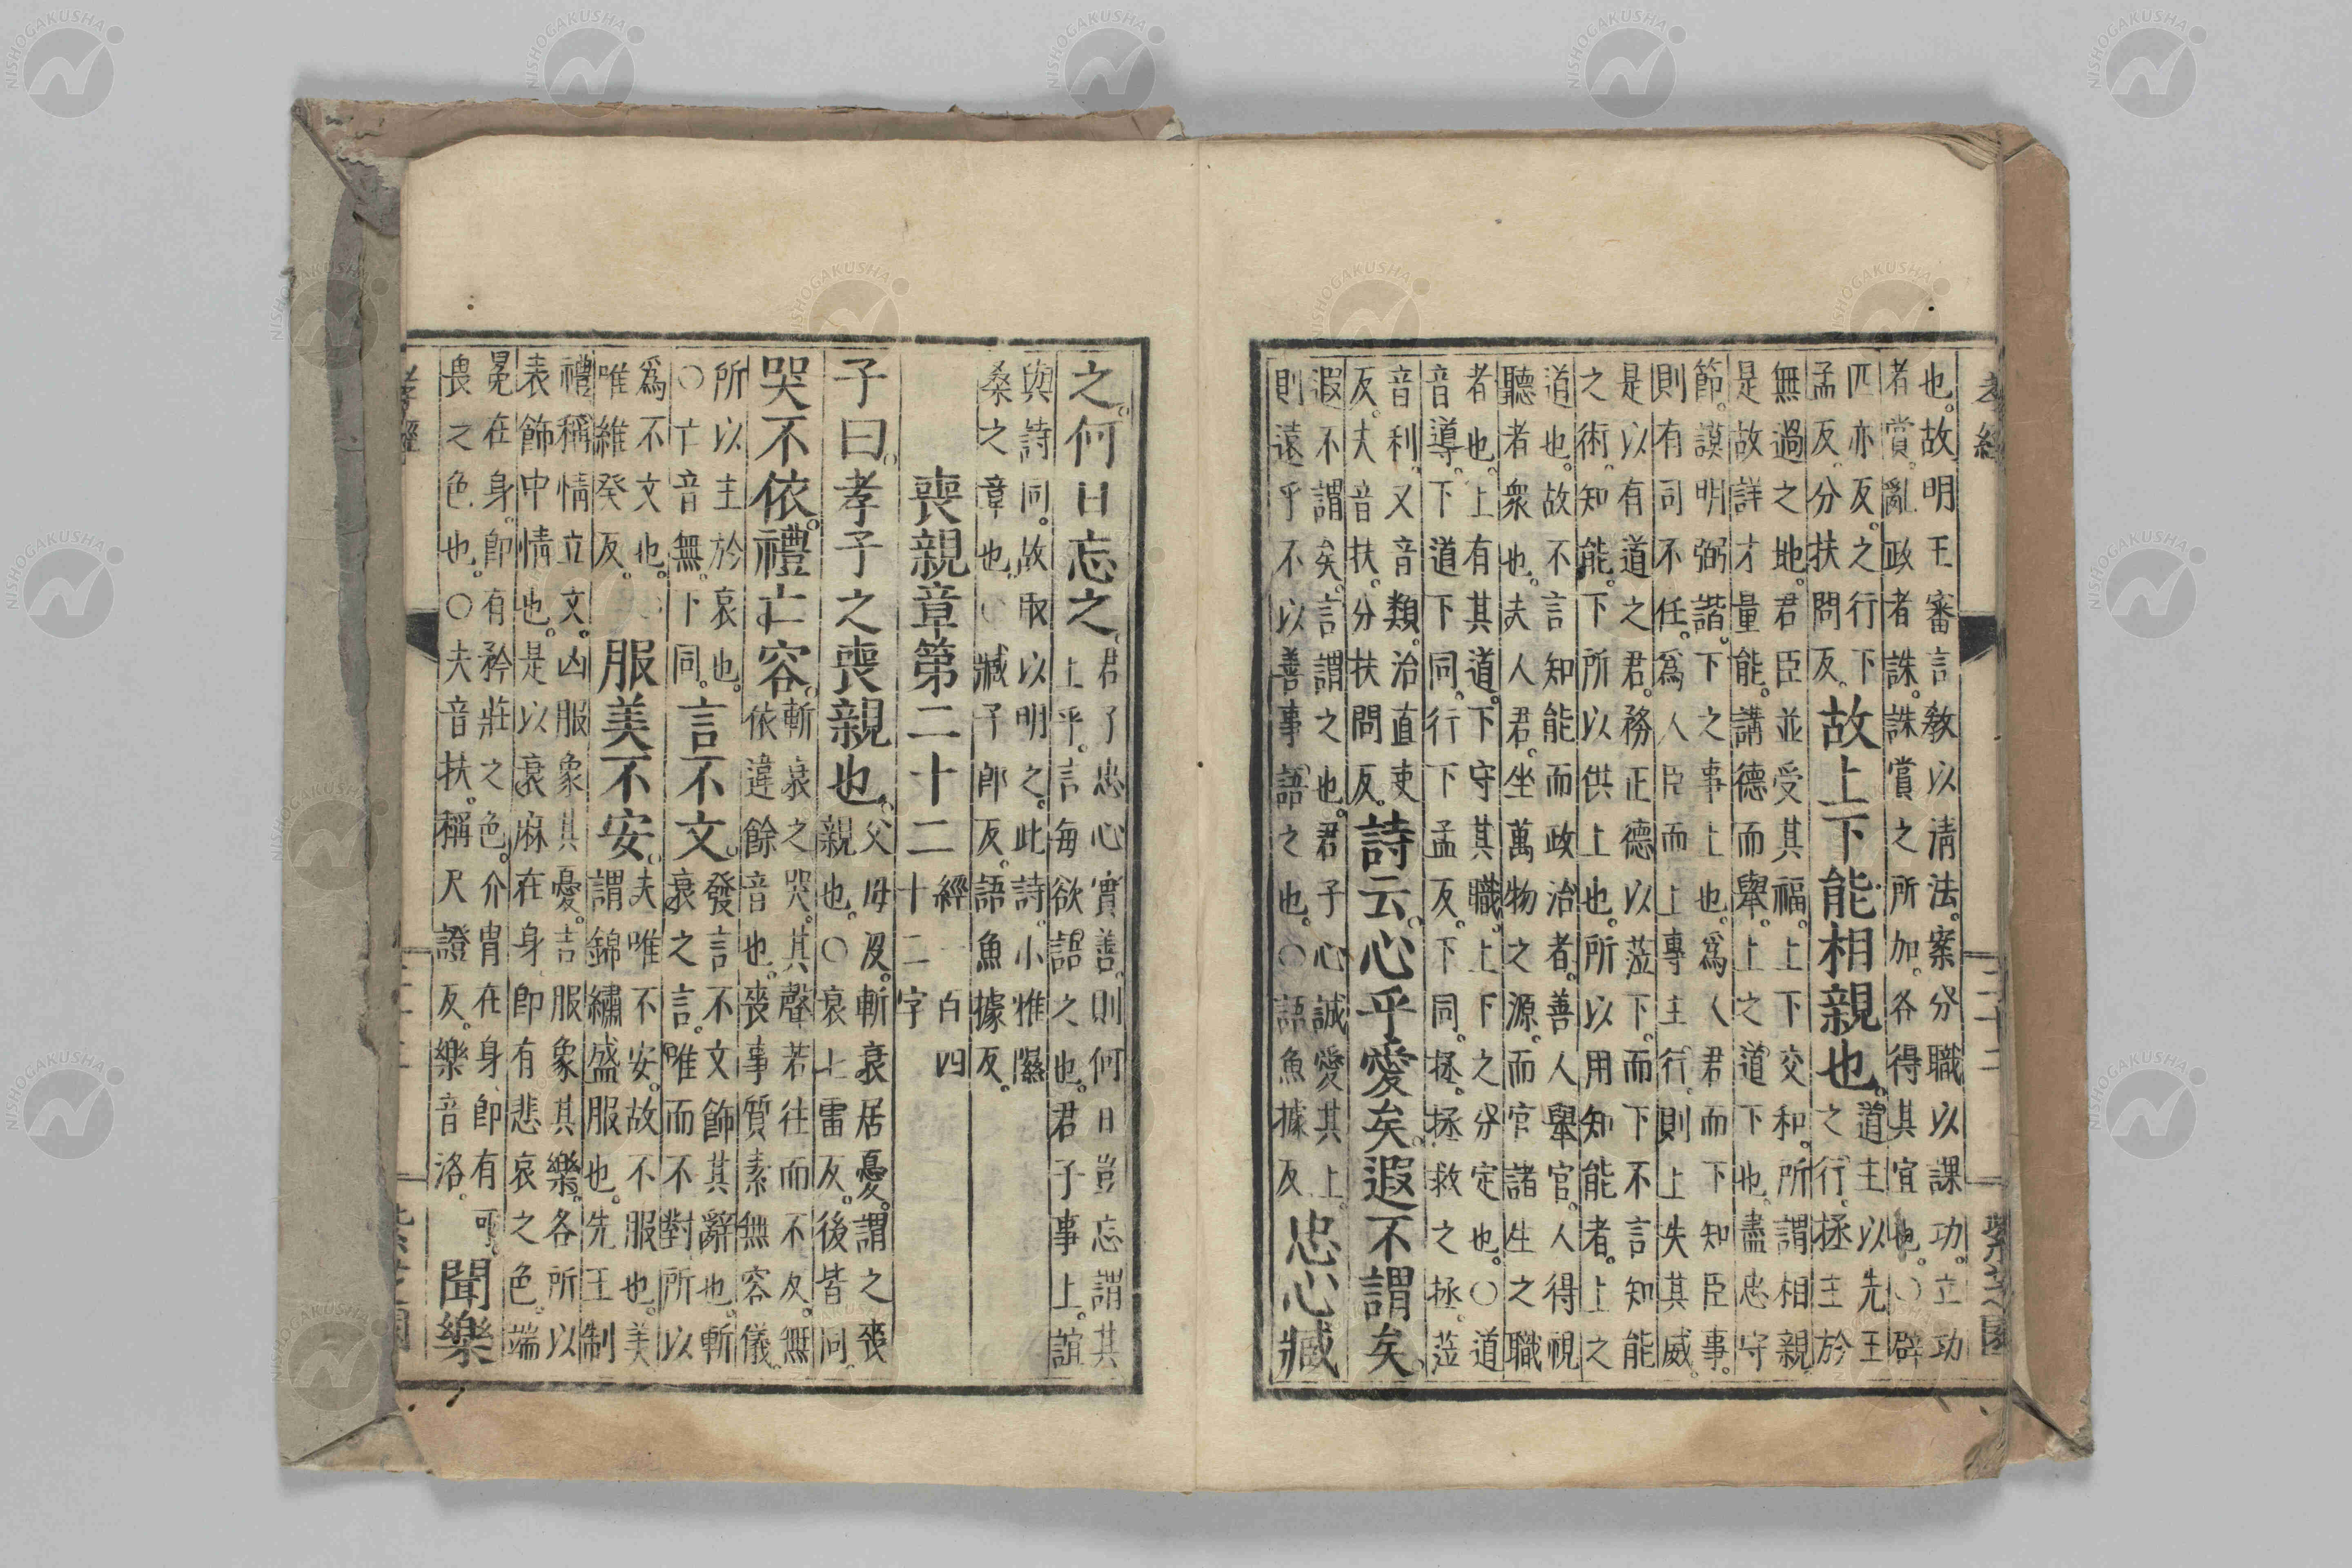 孝經 二十二 紫芝園
也。故明王審言教以清法。案分職以課功。立功
者賞。亂政者誅。誅賞之所加。各得其宜也。○辟
匹亦反。之行下
孟反。分扶問反
故上下能相親也。
道主以先王
之行。拯主於
無過之地。君臣並受其福。上下交和。所謂相親
是故詳才量能。講德而舉。上之道下也。盡忠守
節。謨明弼諧。下之事上也。爲人君而下知臣事。
則有司不任。爲人臣而上專主行。則上失其威。
是以有道之君。務正德以蒞下。而下不言知能
之術。知能。下所以供上也。所以用知能者。上之
道也。故不言知能而政治者。善人舉官。人得視
聽者衆也。夫人君。坐萬物之源。而官諸生之職
者也。上有其道。下守其職。上下之分定也。○道
音導。下道下同。行下孟反。下同。拯。拯救之拯。蒞
音利。又音類。治直吏
反。夫音扶。分扶問反。
詩云。心乎愛矣。遐不謂矣。
遐不謂矣。言謂之也。君子心誠愛其上。
則遠乎不以善事語之也。○語魚據反
忠心臧
之。何日忘之。
君子忠心實善。則何日豈忘謂其
上乎。言每欲語之也。君子事上。誼
與詩同。故取以明之。此詩。小雅隰
桑之章也。○臧子郎反。語魚據反。
喪親章第二十二
經一百四
十二字
子曰。孝子之喪親也。
父母没。斬衰居憂。謂之喪
親也。○衰七雷反。後皆同。
哭不依。禮亡容。
斬衰之哭。其聲若往而不反。無
依違餘音也。喪事質素無容儀。
所以主於哀也。
○亡音無。下同。
言不文。
發言不文飾其辭也。斬
衰之言。唯而不對。所以
爲不文也。
唯維癸反。
服美不安。
夫唯不安。故不服也。美
謂錦繡盛服也。先王制
禮。稱情立文。凶服象其憂。吉服象其樂。各所以
表飾中情也。是以衰麻在身。卽有悲哀之色。端
冕在身。卽有矜莊之色。介冑在身。卽有可
畏之色也。○夫音扶。稱尺證反。樂音洛。
聞樂
孝經 二十三